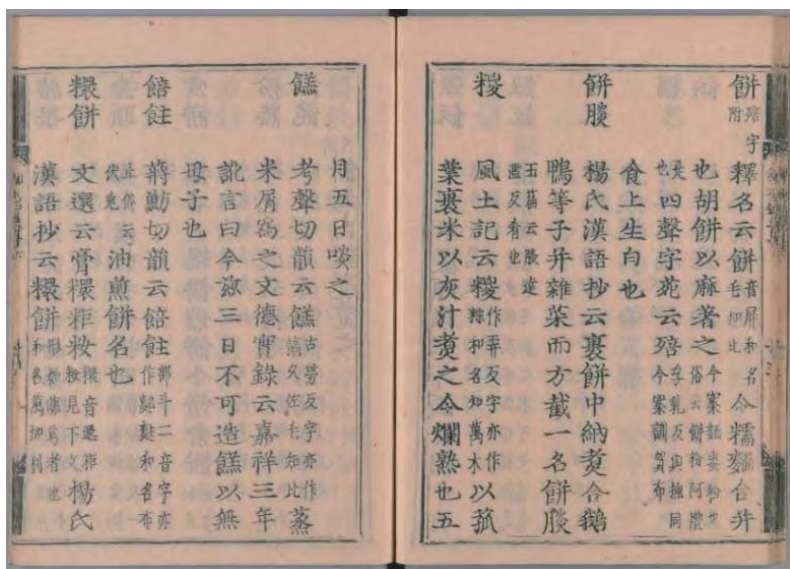 餅殕字附 釋名云餅音屏和名毛知比令糯麵合并
也胡餅以麻著之今案麺麥粉也俗云餅粉阿禮
是也四聲字苑云殕孚乳反與撫同今案訓賀布
食上生白也
餅腅 楊氏漢語抄云裹餅中納煮合鵝
鴨等子并雜菜而方截一名餅腅
玉篇云腅達濫反肴也
糉 風土記云糉作弄反字亦作粽和名知萬木以菰
葉裹米以灰汁煮之令爛熟也五
月五日啖之
餻 考聲切韻云餻古勞反字亦作久佐毛知比蒸
米屑爲之文德實錄云嘉祥三年
訛言曰今茲三日不可造餻以無
母子也
餢飳 蔣魴切韻云餢飳部斗二音字亦作和名布
止俗云伏兔油煎餅名也
糫餅 文選云膏糫粔籹糫音還粔籹見下文楊氏
漢語抄云糫餅形如藤葛者也和名萬加利